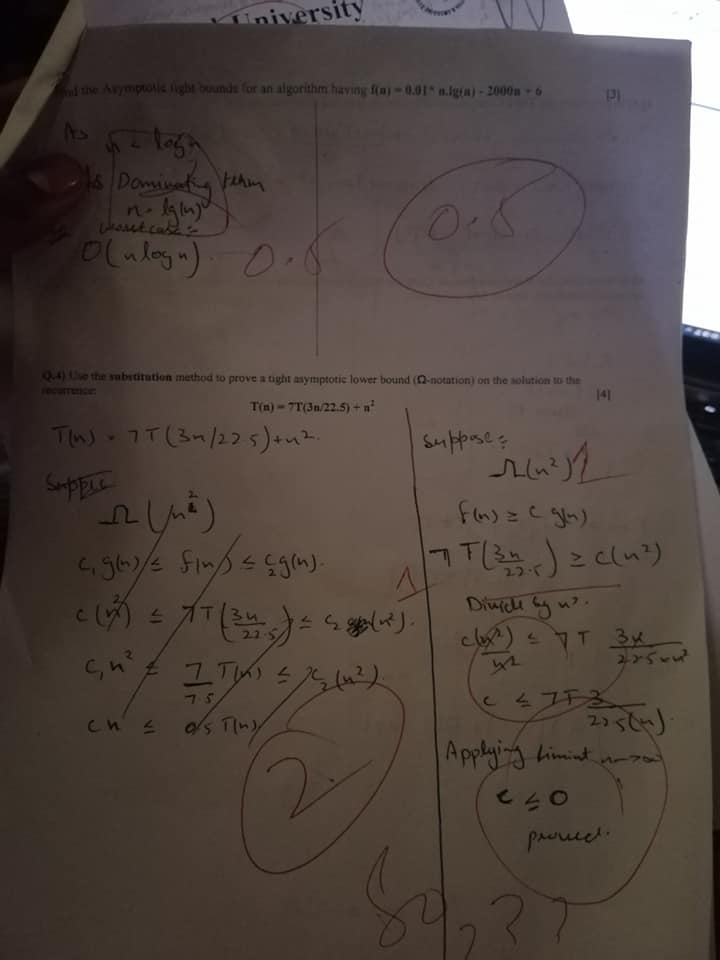 University
the Asymptotic tight bounds for an algorithm having f(n) = 0.01* n.lg(n) - 2000n + 6 [3]
As
log n
As Dominating term
n. lg(n)
worst case:-
O(n log n). 0.5
0.5
Q.4) Use the substitution method to prove a tight asymptotic lower bound (Ω-notation) on the solution to the
recurrence: [4]
T(n) = 7T(3n/22.5) + n²
T(n) = 7T(3n/22.5)+n².
Ω(n²)
c₁ g(n) ≤ f(n) ≤ c₂ g(n).
c(n²) ≤ 7T(3n/22.5) ≤ c₂ (n²).
1
c₁n² ≤ 7/7.5 T(n) ≤ c₂(n²)
cn ≤ T(n)
2
Suppose:
Ω(n²) 1
f(n) ≥ c g(n)
7T(3n/22.5) ≥ c(n²)
Divide by n².
c(n²)/n² ≤ 7T 3n/22.5×n²
c ≤ 7T 3/22.5(n).
Applying Limint n->∞
c ≤ 0
proved.
So, ??